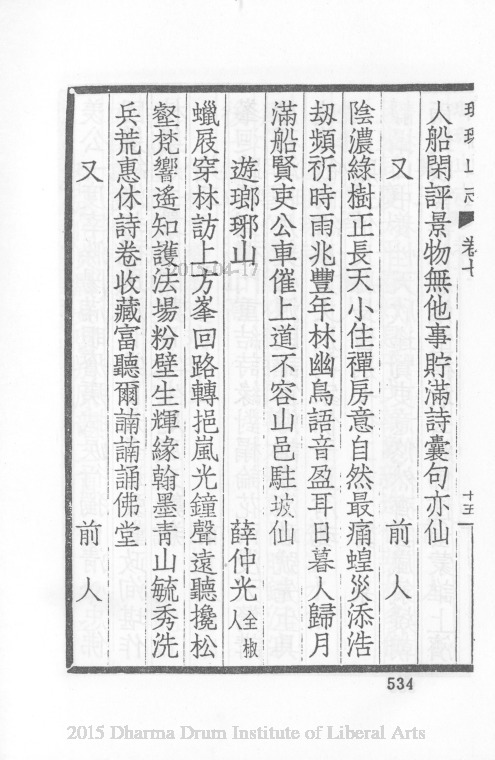 琅琊山志 卷七 十五
人船閑評景物無他事貯滿詩囊句亦仙
又 前人
陰濃綠樹正長天小住禪房意自然最痛蝗災添浩
刼頻祈時雨兆豐年林幽鳥語音盈耳日暮人歸月
滿船賢吏公車催上道不容山邑駐坡仙
遊瑯琊山 薛仲光全椒人
蠟屐穿林訪上方峯回路轉挹嵐光鐘聲遠聽攙松
壑梵響遙知護法場粉壁生輝緣翰墨靑山毓秀洗
兵荒惠休詩卷收藏富聽爾諵諵誦佛堂
又 前人
534
2015-04-17
2015 Dharma Drum Institute of Liberal Arts